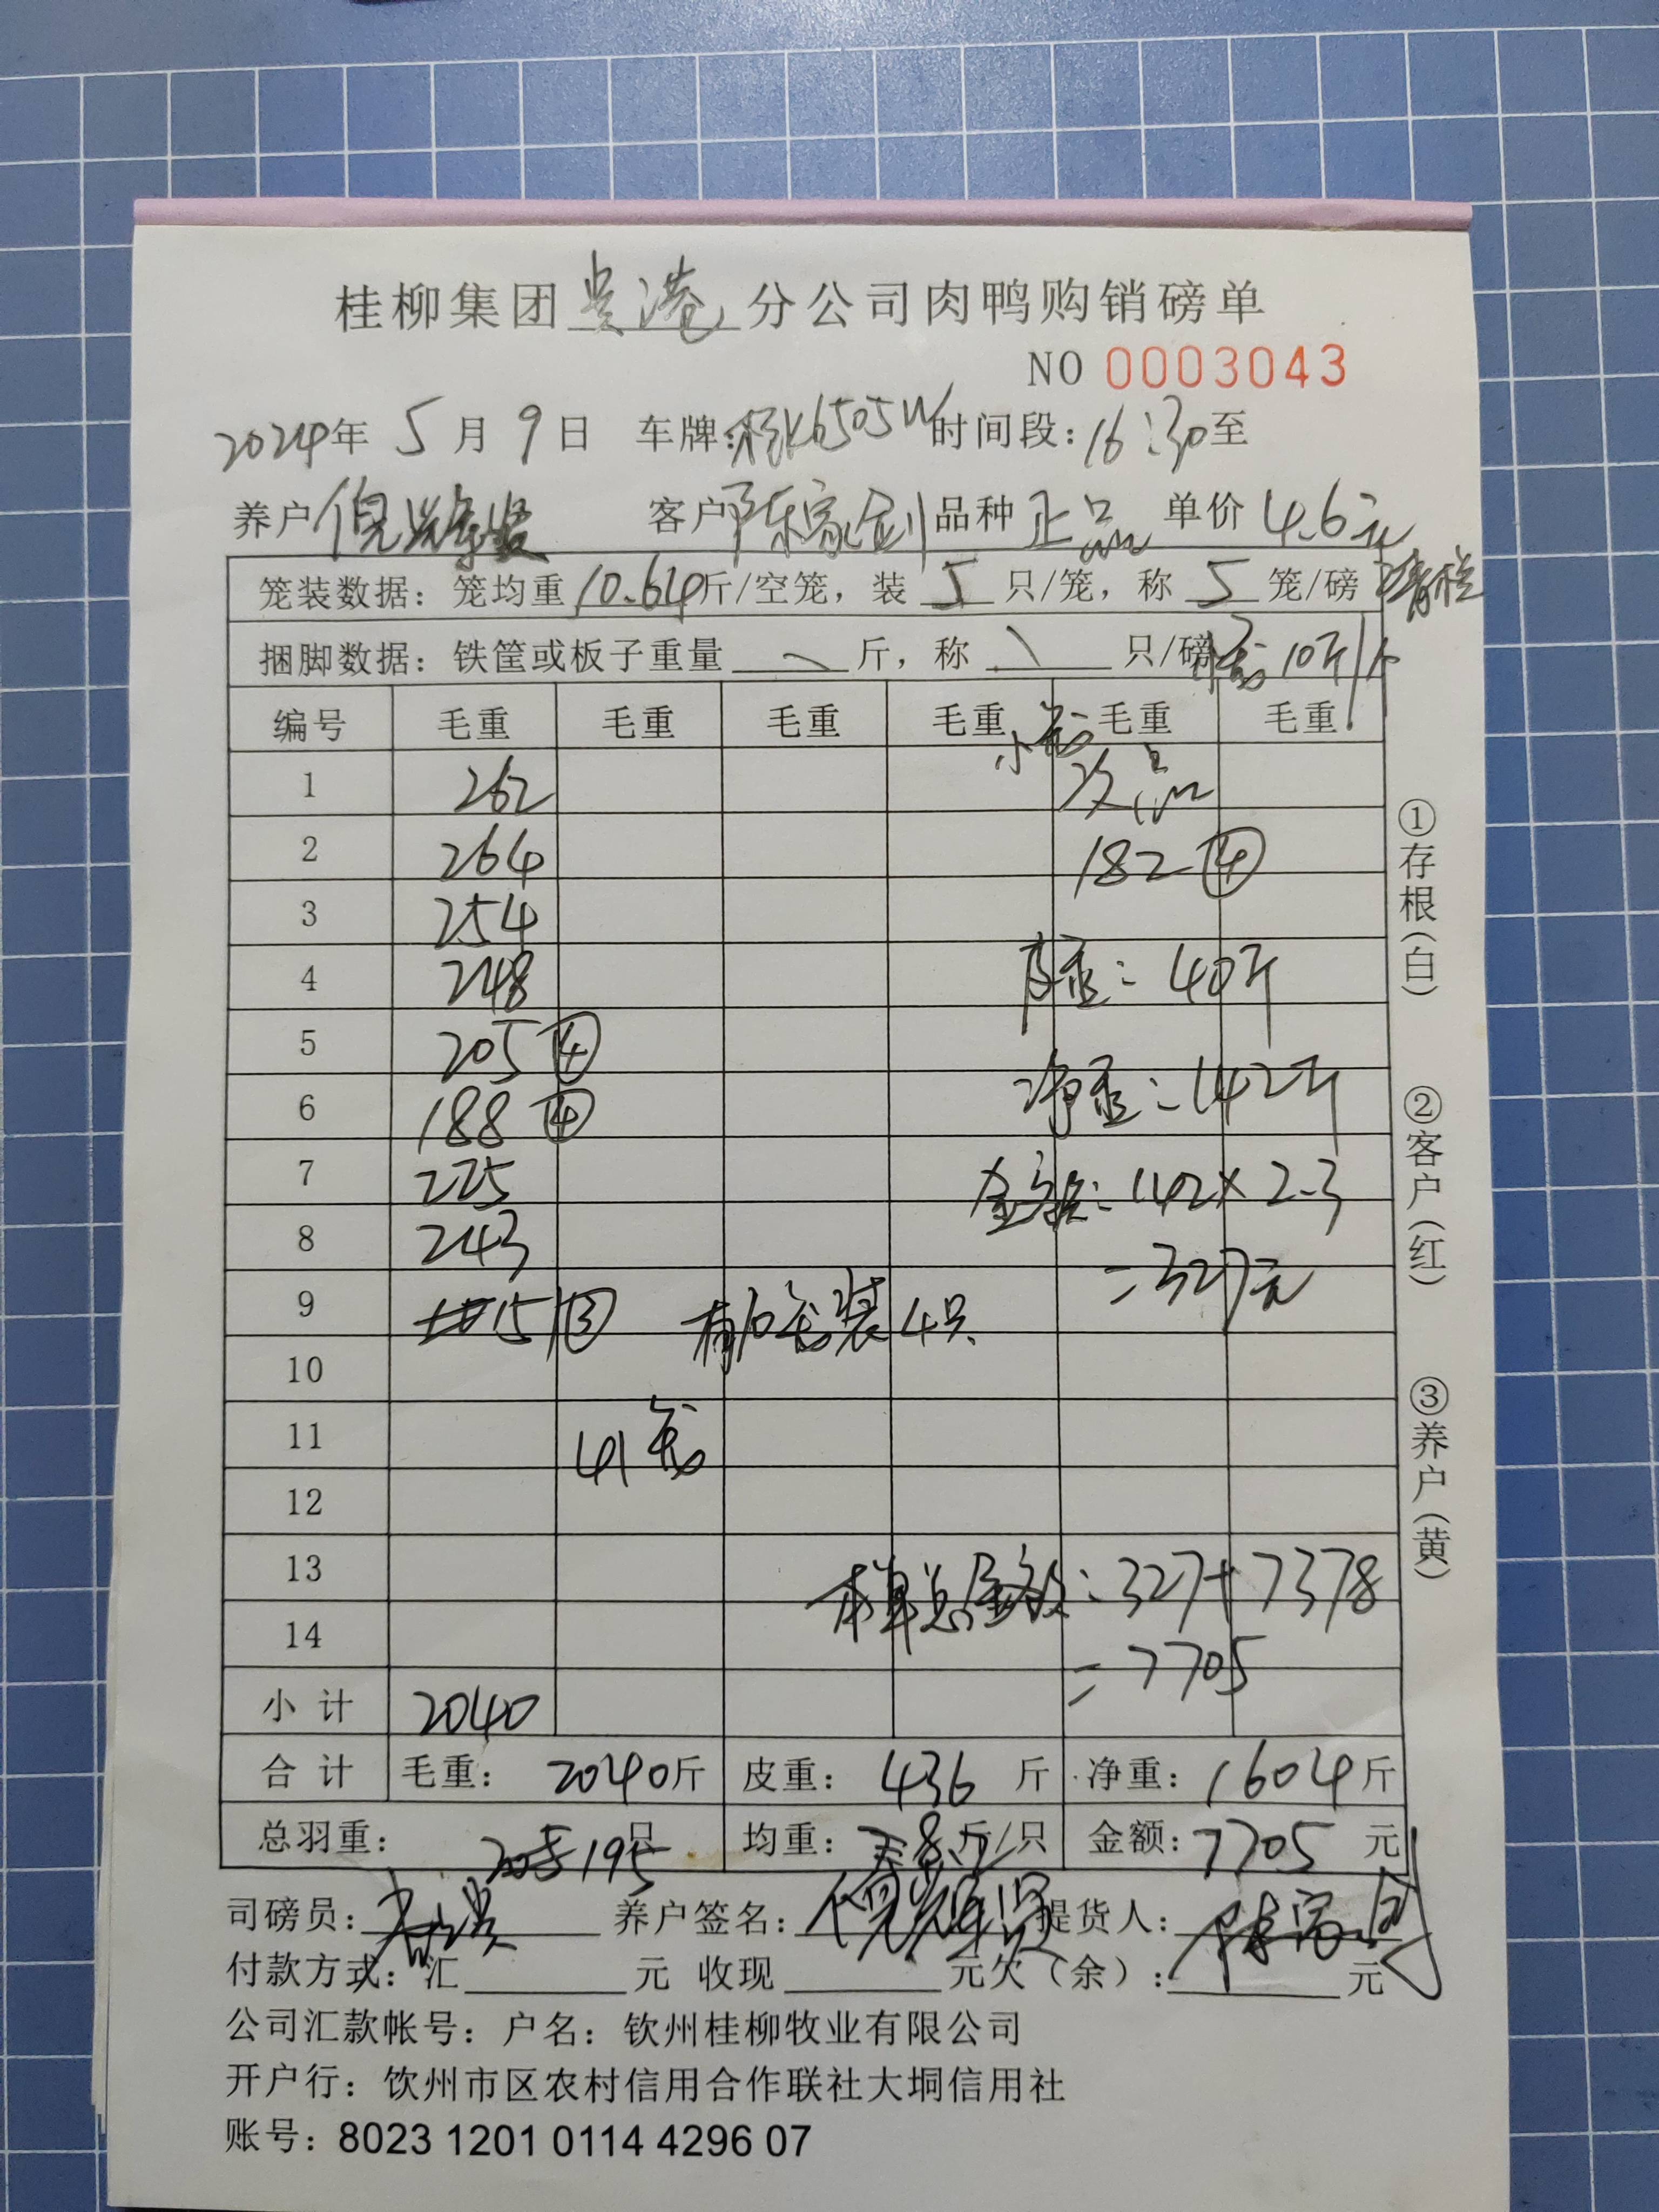 桂柳集团贵港分公司肉鸭购销磅单
NO 0003043
2024年 5 月 9 日 车牌: K6505W 时间段: 16:30至
养户 倪 客户 陈家剑 品种 正品 单价 4.6元
笼装数据: 笼均重 10.64斤/空笼, 装 5 只/笼, 称 5 笼/磅
捆脚数据: 铁筐或板子重量 \ 斤, 称 \ 只/磅 10斤/个
编号 毛重 毛重 毛重 毛重 毛重 毛重
小笼
1 262 次品
2 264 182 ④
3 254
4 248 皮重: 40斤
5 205 ④
6 188 ④ 净重: 142斤
7 225 金额: 142×2.3
8 243 =327元
9 151 ③ 有1笼装4只
10
11 41笼
12
13 本单总金额: 327+7378
14 =7705
小计 2040
合计 毛重: 2040斤 皮重: 436 斤 净重: 1604斤
总羽重: 195 只 均重: 8. 斤/只 金额: 7705 元
司磅员: 养户签名: 倪 提货人: 陈家剑
付款方式: 汇 元 收现 元欠(余): 元
公司汇款帐号: 户名: 钦州桂柳牧业有限公司
开户行: 饮州市区农村信用合作联社大垌信用社
账号: 8023 1201 0114 4296 07
①存根(白)
②客户(红)
③养户(黄)